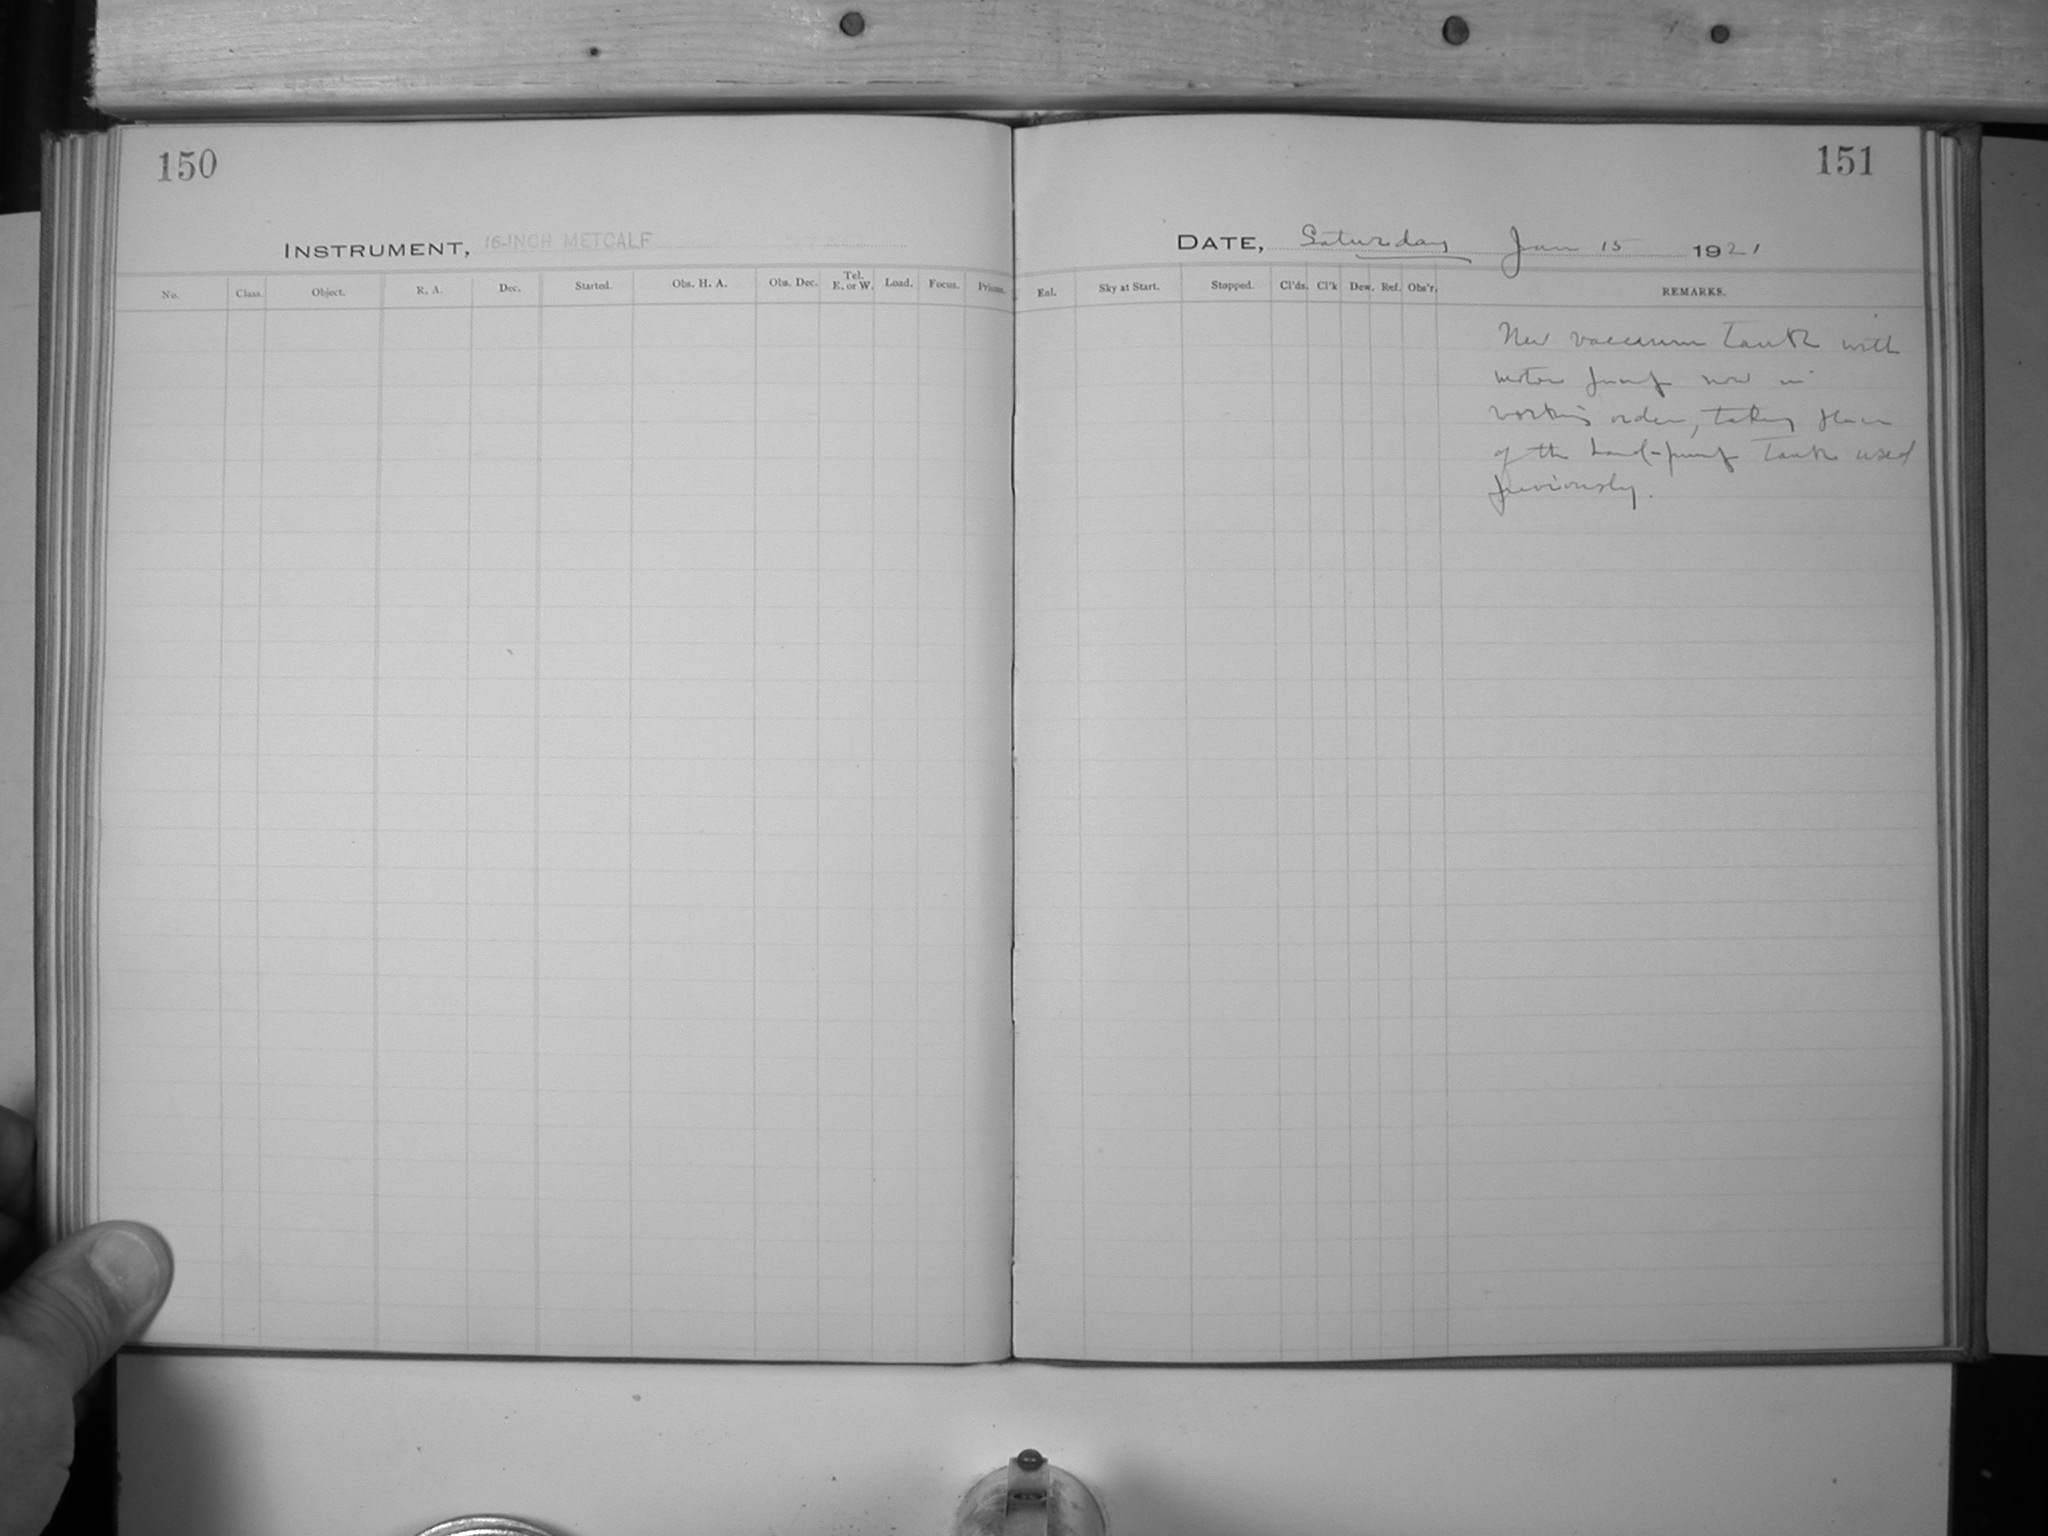 150
INSTRUMENT, 16-INCH METCALF
No. Class. Object. R. A. Dec. Started. Obs. H. A. Obs. Dec. Tel. E. or W. Load. Focus. Prisms.
151
DATE, Saturday Jan 15 1921
Eal. Sky at Start. Stopped. Cl'ds. Cl'k Dew. Ref. Obs'r. REMARKS.
New vaccuum tank with
motor pump now in
working order, taking place
of the hand-pump tank used
previously.